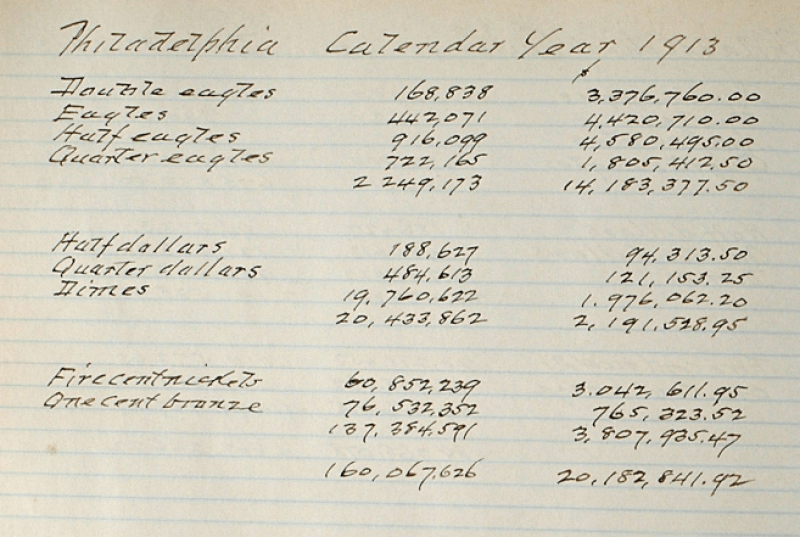 Philadelphia Calendar Year 1913
$
Double eagles 168,838 3,376,760.00
Eagles 442,071 4,420,710.00
Half eagles 916,099 4,580,495.00
Quarter eagles 722,165 1,805,412.50
2 249,173 14,183,377.50
Half dollars 188,627 94,313.50
Quarter dollars 484,613 121,153.25
Dimes 19,760,622 1.976,062.20
20,433,862 2,191,528.95
Five cent nickels 60,852,239 3.042,611.95
One cent bronze 76,532,352 765,323.52
137,384,591 3,807,935.47
160,067,626 20,182,841.92